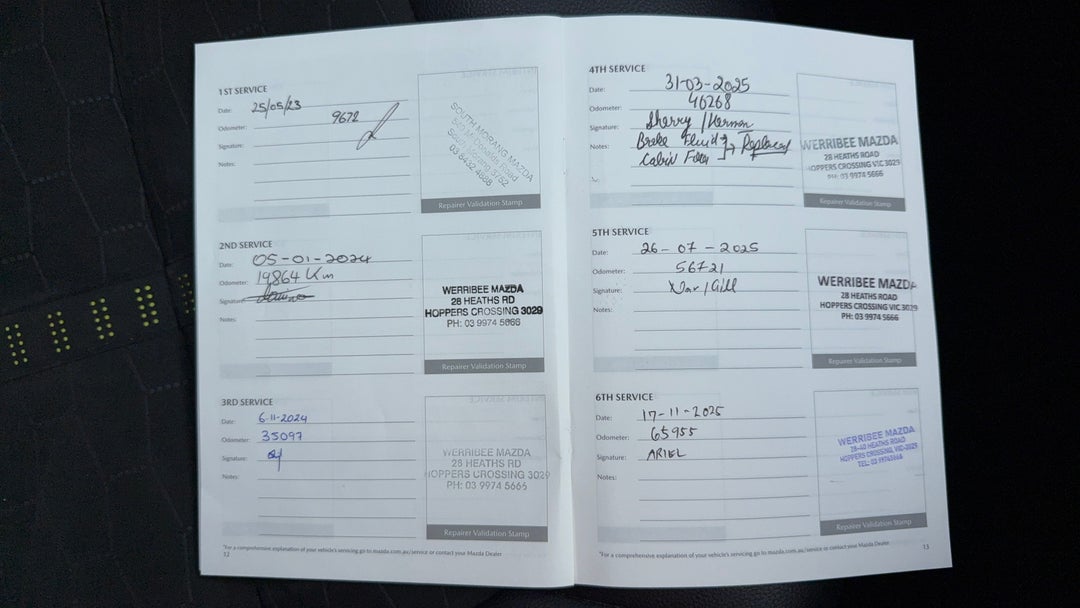 1ST SERVICE
Date: 25/05/23
Odometer: 9672
Signature:
Notes:
SOUTH MORANG MAZDA
Road
South Morang 3752
Repairer Validation Stamp
2ND SERVICE
Date: 05-01-2024
Odometer: 19864 Km
Signature:
Notes:
WERRIBEE MAZDA
28 HEATHS RD
HOPPERS CROSSING 3029
PH: 03 9974 5666
Repairer Validation Stamp
3RD SERVICE
Date: 6-11-2024
Odometer: 35097
Signature:
Notes:
WERRIBEE MAZDA
28 HEATHS RD
HOPPERS CROSSING 3029
PH: 03 9974 5666
Repairer Validation Stamp
*For a comprehensive explanation of your vehicle's servicing go to mazda.com.au/service or contact your Mazda Dealer
12
4TH SERVICE
Date: 31-03-2025
Odometer: 46268
Signature: Sherry /
Notes: Brake Fluid
Cabin Filter Replaced
WERRIBEE MAZDA
28 HEATHS ROAD
HOPPERS CROSSING VIC 3029
PH: 03 9974 5666
Repairer Validation Stamp
5TH SERVICE
Date: 26-07-2025
Odometer: 56721
Signature: Nav/Gill
Notes:
WERRIBEE MAZDA
28 HEATHS ROAD
HOPPERS CROSSING VIC 3029
PH: 03 9974 5666
Repairer Validation Stamp
6TH SERVICE
Date: 17-11-2025
Odometer: 65955
Signature: ARIEL
Notes:
WERRIBEE MAZDA
28-40 HEATHS ROAD
HOPPERS CROSSING, VIC-3029
TEL: 03 99745666
Repairer Validation Stamp
*For a comprehensive explanation of your vehicle's servicing go to mazda.com.au/service or contact your Mazda Dealer
13